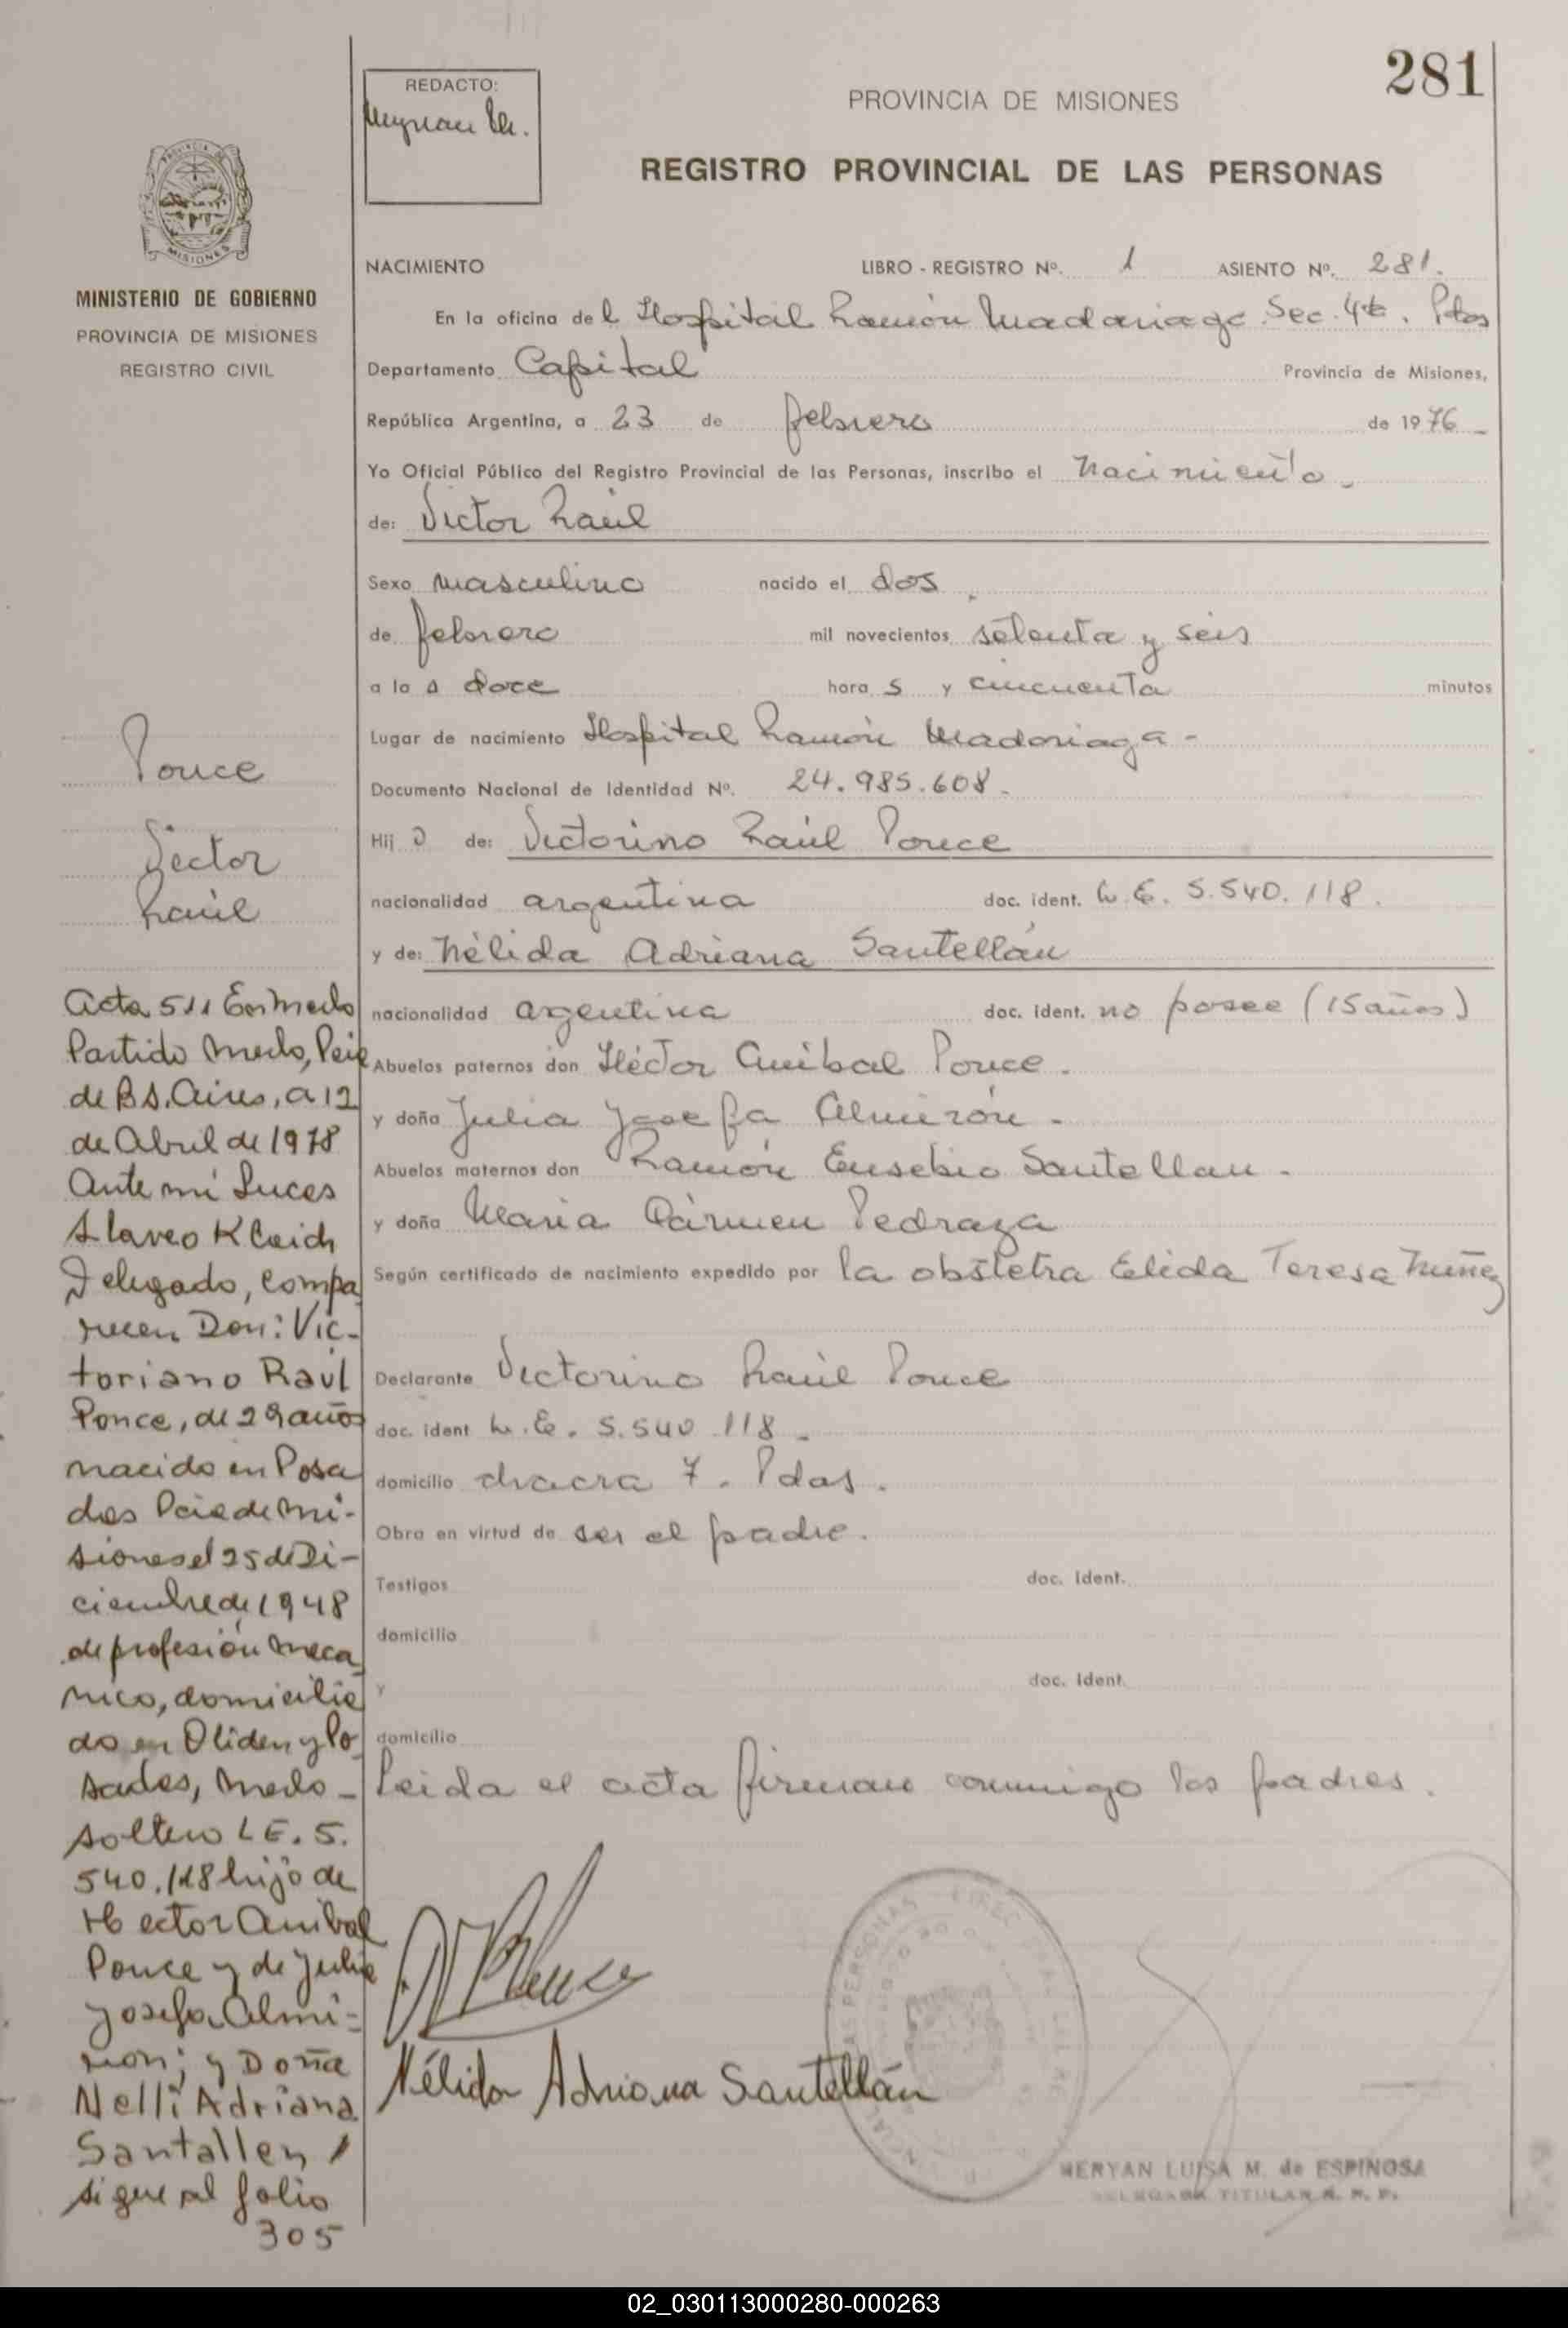 281
REDACTO:
PROVINCIA DE MISIONES
REGISTRO PROVINCIAL DE LAS PERSONAS
MISIONES
MINISTERIO DE GOBIERNO
PROVINCIA DE MISIONES
REGISTRO CIVIL
NACIMIENTO LIBRO - REGISTRO Nº. 1 ASIENTO Nº. 281.
En la oficina del Hospital Ramón Madariaga Sec. 4ta. Pdas
Departamento Capital Provincia de Misiones,
República Argentina, a 23 de febrero de 1976
Yo Oficial Público del Registro Provincial de las Personas, inscribo el nacimiento
de: Victor Raúl
Sexo masculino nacido el dos
de febrero mil novecientos setenta y seis
a las doce horas y cincuenta minutos
Lugar de nacimiento Hospital Ramón Madariaga -
Documento Nacional de Identidad Nº. 24.985.608.
Hijo de: Victorino Raúl Ponce
nacionalidad argentina doc. ident. L.E. 5.540.118.
y de: Nélida Adriana Santellán
nacionalidad argentina doc. ident. no posee (15 años)
Abuelos paternos don Héctor Anibal Ponce.
y doña Julia Josefa Almirón -
Abuelos maternos don Ramón Eusebio Santellan -
y doña Maria Cármen Pedraza
Según certificado de nacimiento expedido por la obstetra Elida Teresa Nuñez
Declarante Victorino Raúl Ponce
doc. ident L.E. 5.540.118 -
domicilio chacra 7. Pdas.
Obra en virtud de ser el padre.
Testigos doc. ident.
domicilio
y doc. ident.
domicilio
Leida el acta firman conmigo los padres.
Nélida Adriana Santellán
MERYAN LUISA M. de ESPINOSA
DELEGADA TITULAR R. P. P.
Ponce
Victor
Raúl
Acta 511 En Merlo
Partido Merlo, Pcia
de Bs. Aires, a 12
de Abril de 1978
Ante mi Lucas
Slaveo Klaich
Delegado, compa
recen Don: Vic-
toriano Raúl
Ponce, de 29 años
nacido en Posa
das Pcia de Mi-
siones el 25 de Di-
ciembre de 1948
de profesión meca
nico, domicilia
do en Oliden y Po
sadas, Merlo -
soltero LE. 5.
540.118 hijo de
Hector Anibal
Ponce y de Julia
Josefa Almi-
ron; y Doña
Nelli Adriana
Santallen
sigue al folio
305
02_030113000280-000263